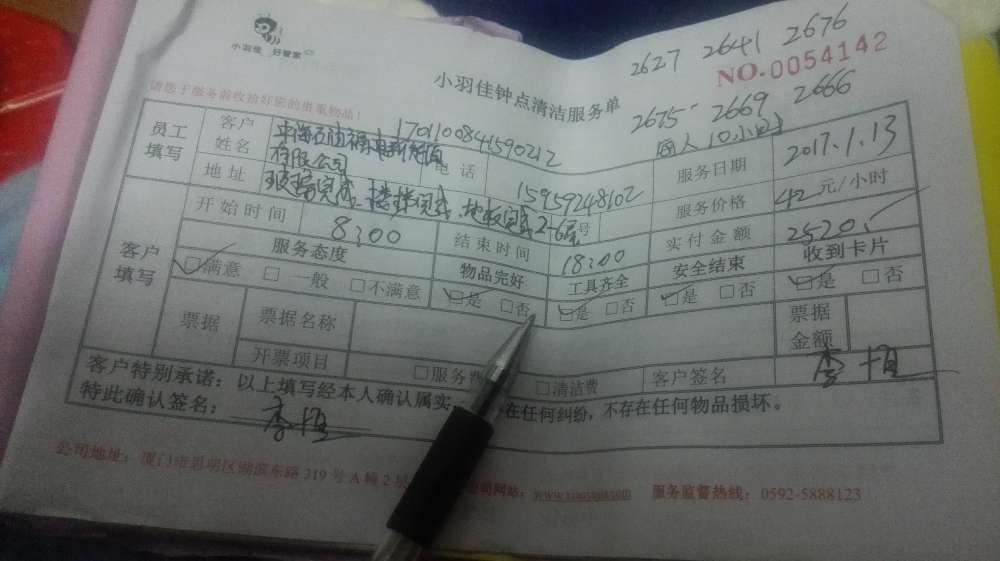 小羽佳 好管家
小羽佳钟点清洁服务单
2627 2641 2676
NO.0054142
2675 2669 2666
请您于服务前收拾好您的贵重物品!
员工填写
客户姓名
有限公司
17011008441590212
电话
15959248102
服务日期
2017.1.13
地址
玻璃完成、楼梯完成、地板完成2-6层
号
服务价格
42 元/小时
开始时间
8:00
结束时间
18:00
实付金额
2520
客户填写
服务态度
物品完好
工具齐全
安全结束
收到卡片
☑满意 □一般 □不满意
☑是 □否
☑是 □否
☑是 □否
☑是 □否
票据
票据名称
票据金额
开票项目
□服务费
□清洁费
客户签名
李恒
客户特别承诺:以上填写经本人确认属实
在任何纠纷,不存在任何物品损坏。
特此确认签名:
李恒
公司地址:厦门市思明区湖滨东路 319 号 A 幢 2
公司网站:
服务监督热线:0592-5888123